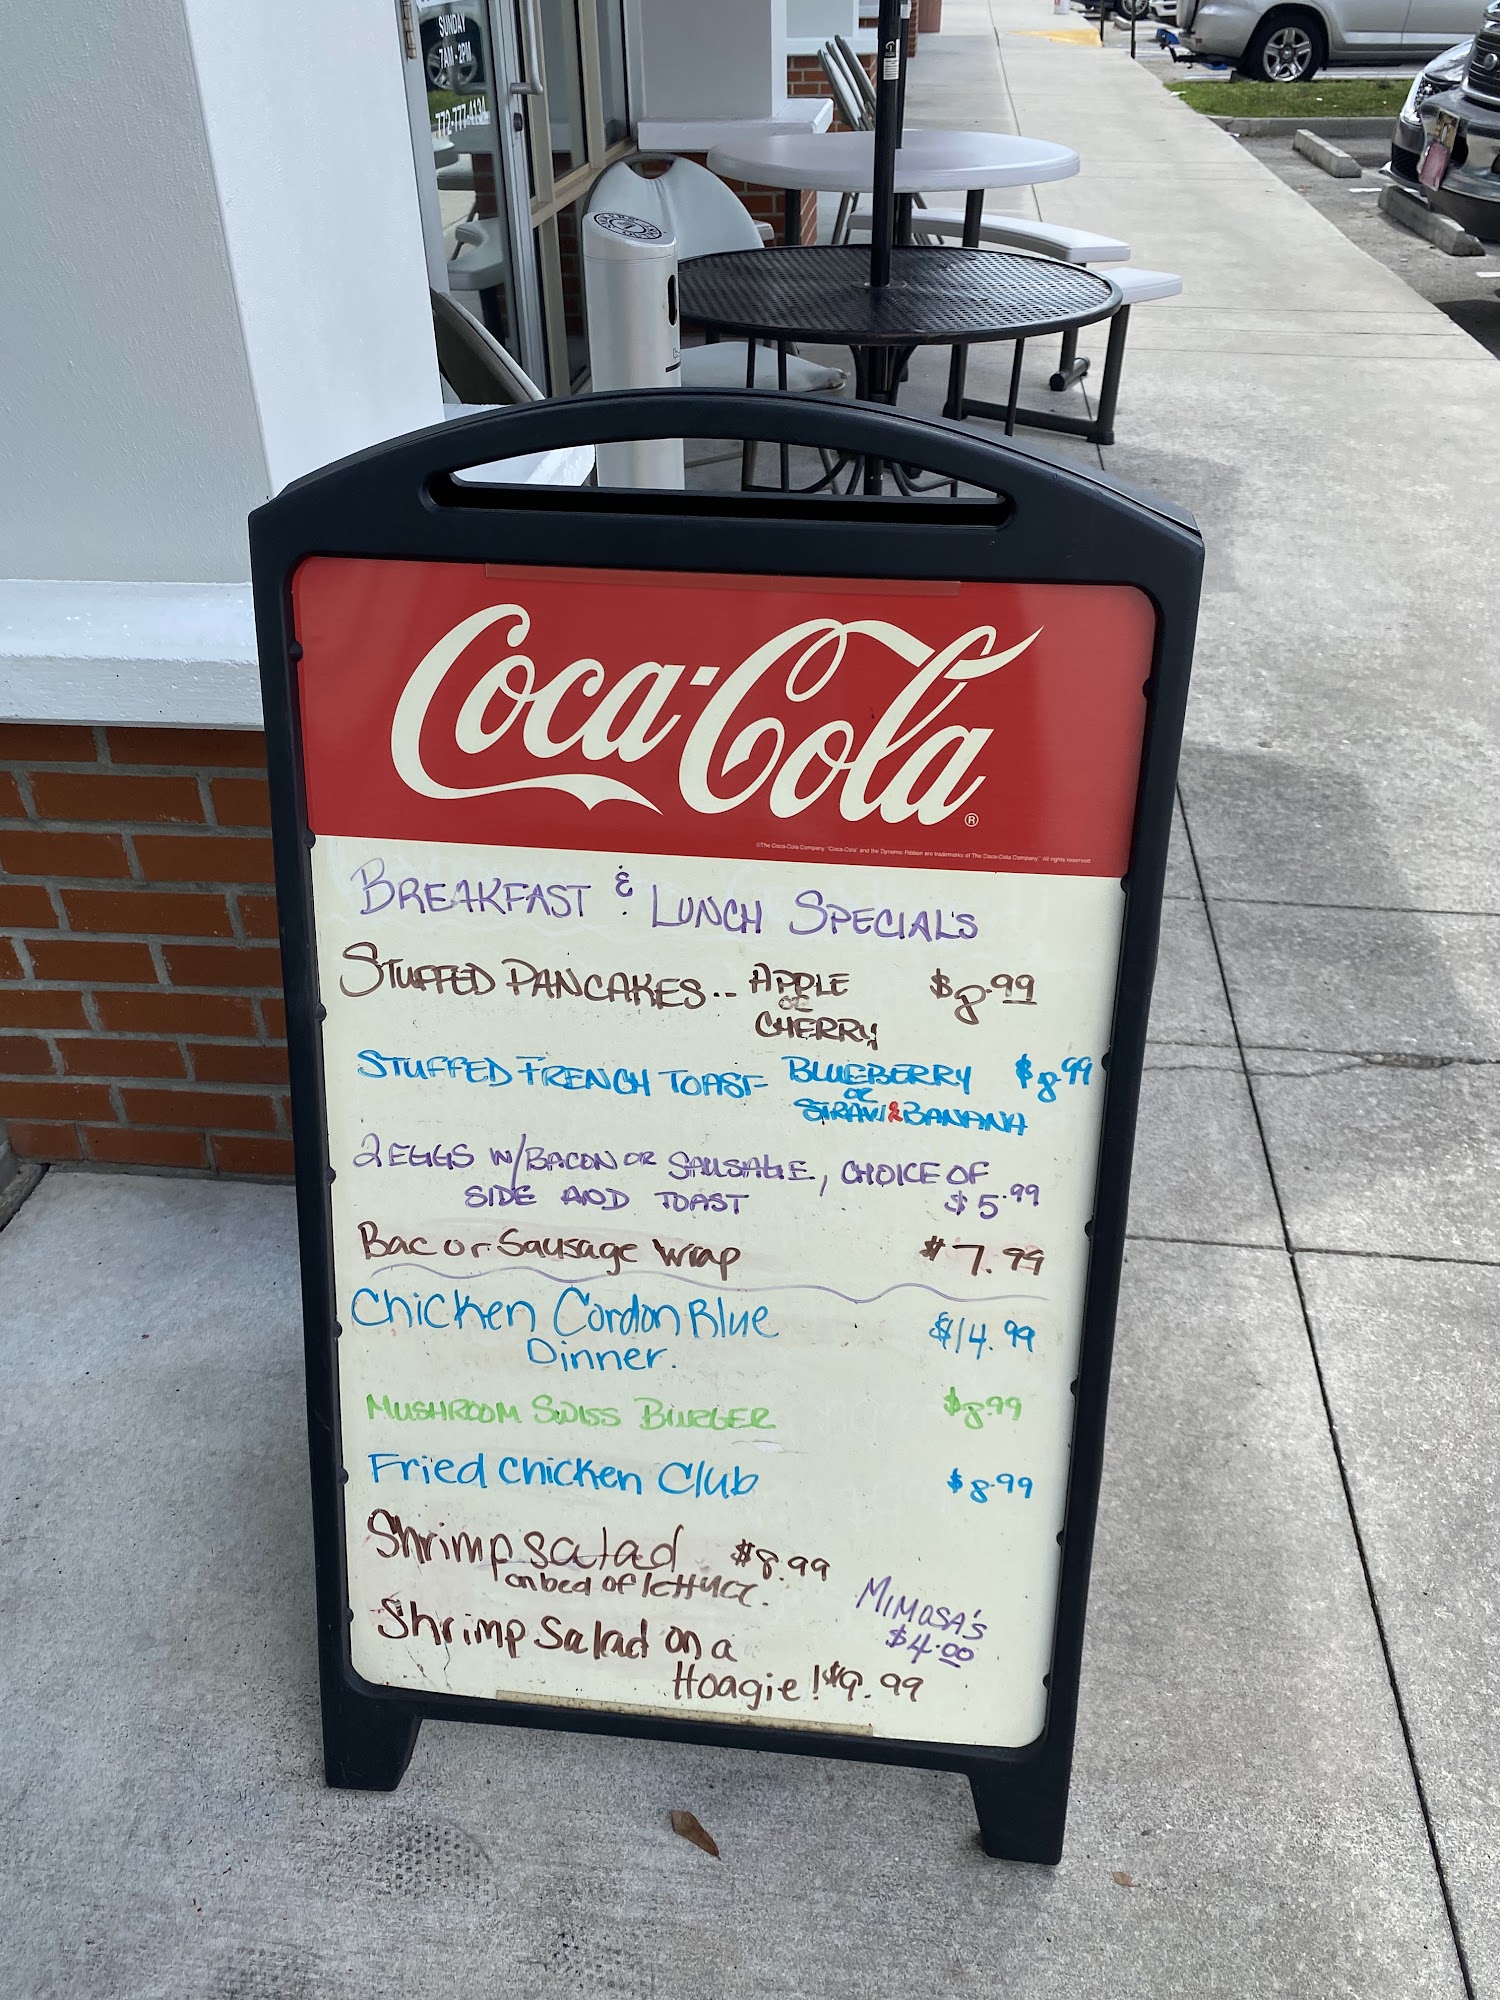 SUNDAY
7AM-2PM
772-777-4134
Coca-Cola®
©The Coca-Cola Company. "Coca-Cola" and the Dynamic Ribbon are trademarks of The Coca-Cola Company. All rights reserved.
BREAKFAST & LUNCH SPECIAL'S
STUFFED PANCAKES.. APPLE $8.99
OR
CHERRY
STUFFED FRENCH TOAST- BLUEBERRY $8.99
OR
STRAW & BANANA
2 EGGS W/BACON OR SAUSAGE, CHOICE OF
SIDE AND TOAST $5.99
Bac or Sausage Wrap $7.99
Chicken Cordon Blue $14.99
Dinner.
MUSHROOM SWISS BURGER $8.99
Fried Chicken Club $8.99
Shrimp salad $8.99
on bed of lettuce.
MIMOSA'S
$4.00
Shrimp Salad on a
Hoagie! $9.99